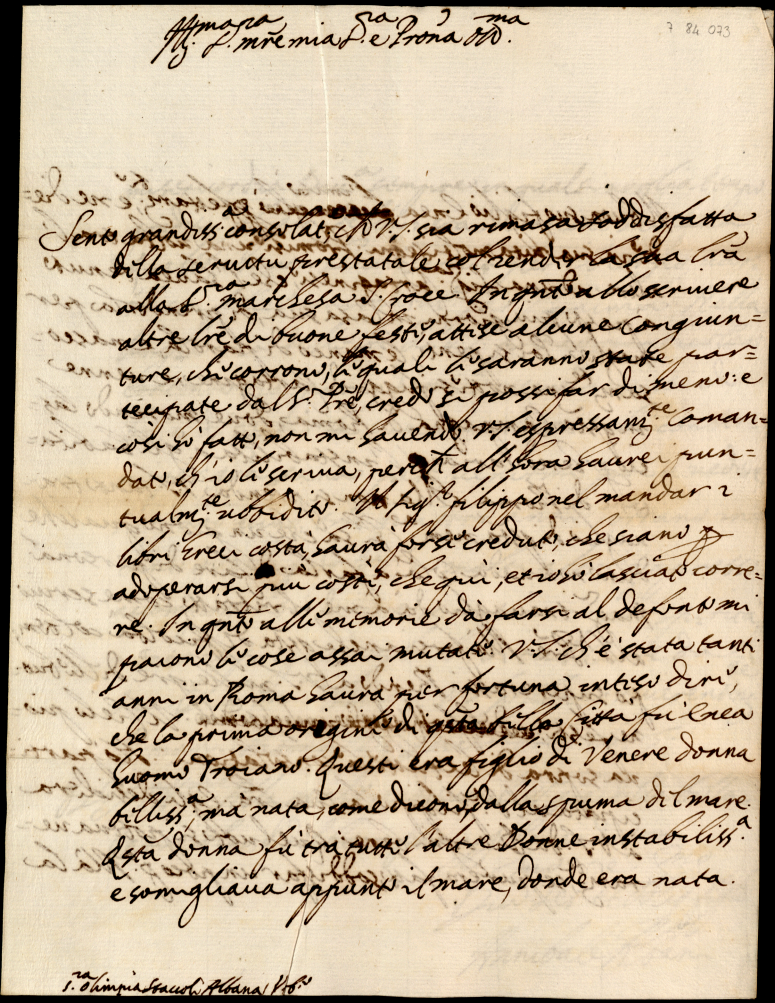 7 84 073
Ill.ma S.ra mrẽ mia S.ra e Prona oss.ma
Sento grandiss.a consolat.e ch V.S. sia rimasa soddisfatta
della servitù prestatale col render la sua lrã
alla S.ra marchesa S. Croce. In qnto allo scrivere
altre lrẽ di buone feste, attese alcune congiun=
ture, che corrono, le quali le saranno state par=
tecipate dal S.r Pre, credo si possi far di meno: e
così hò fatto, non mi havendo V.S. espressam.te coman=
dato, ch'io le scriva, perchè all'hora haurei pun=
tualm.te ubbidito. Il Sig.r filippo nel mandar i
libri Greci costà, haurà forse creduto, che siano p
adoperarsi più costì, che quì, et io hò lasciato corre=
re. In qnto alle memorie da farsi al defonto mi
paiono le cose assai mutate. V.S. ch'è stata tanti
anni in Roma haurà per fortuna inteso dire,
che la prima origine di qsta bella Città fù Enea
huomo Troiano. Questi era figlio di Venere donna
belliss.a, mà nata, come dicono, dalla spuma del mare.
Qsta donna fù trà tutte l'altre Donne instabiliss.a
e somigliava appunto il mare, donde era nata.
S.ra Olimpia Staccoli Albana Urb.o